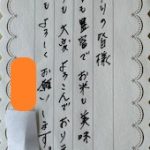 りの皆様
も豊富でお米も美味
も大変よろこんでおりま
もよろしくお願いします